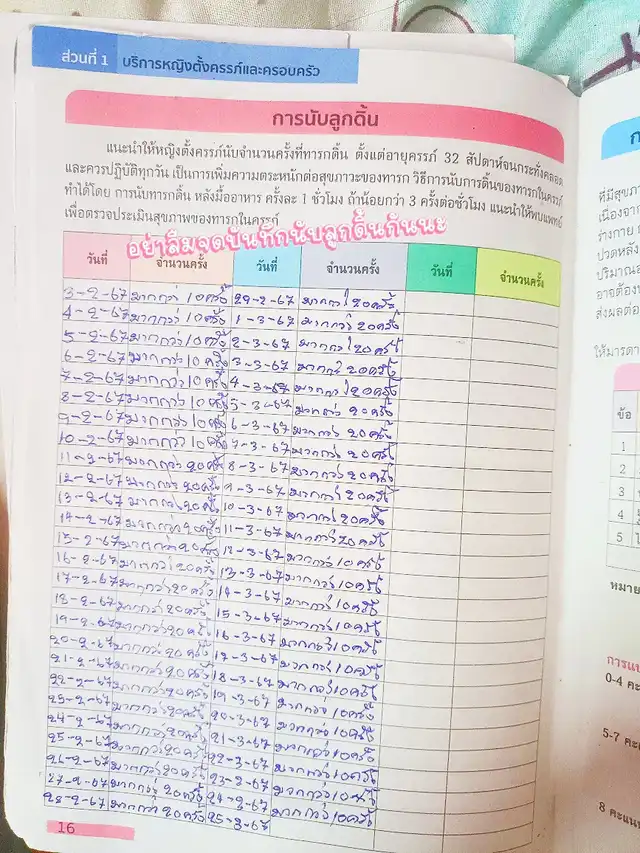 ส่วนที่ 1 บริการหญิงตั้งครรภ์และครอบครัว
การนับลูกดิ้น
แนะนำให้หญิงตั้งครรภ์นับจำนวนครั้งที่ทารกดิ้น ตั้งแต่อายุครรภ์ 32 สัปดาห์จนกระทั่งคลอด
และควรปฏิบัติทุกวัน เป็นการเพิ่มความตระหนักต่อสุขภาวะของทารก วิธีการนับการดิ้นของทารกในครรภ์
ทำได้โดย การนับทารกดิ้น หลังมื้ออาหาร ครั้งละ 1 ชั่วโมง ถ้าน้อยกว่า 3 ครั้งต่อชั่วโมง แนะนำให้พบแพทย์
เพื่อตรวจประเมินสุขภาพของทารกในครรภ์
อย่าลืมจดบันทึกนับลูกดิ้นกันนะ
วันที่ จำนวนครั้ง วันที่ จำนวนครั้ง วันที่ จำนวนครั้ง
3-2-67 มากกว่า 10ครั้ง 29-2-67 มากกว่า 20ครั้ง
4-2-67 มากกว่า 10ครั้ง 1-3-67 มากกว่า 20ครั้ง
5-2-67 มากกว่า 10ครั้ง 2-3-67 มากกว่า 20ครั้ง
6-2-67 มากกว่า 10ครั้ง 3-3-67 มากกว่า 20ครั้ง
7-2-67 มากกว่า 10ครั้ง 4-3-67 มากกว่า 20ครั้ง
8-2-67 มากกว่า 10ครั้ง 5-3-67 มากกว่า 20ครั้ง
9-2-67 มากกว่า 10ครั้ง 6-3-67 มากกว่า 20ครั้ง
10-2-67 มากกว่า 10ครั้ง 7-3-67 มากกว่า 20ครั้ง
11-2-67 มากกว่า 20ครั้ง 8-3-67 มากกว่า 20ครั้ง
12-2-67 มากกว่า 20ครั้ง 9-3-67 มากกว่า 20ครั้ง
13-2-67 มากกว่า 20ครั้ง 10-3-67 มากกว่า 20ครั้ง
14-2-67 มากกว่า 20ครั้ง 11-3-67 มากกว่า 20ครั้ง
15-2-67 มากกว่า 20ครั้ง 12-3-67 มากกว่า 10ครั้ง
16-2-67 มากกว่า 20ครั้ง 13-3-67 มากกว่า 10ครั้ง
17-2-67 มากกว่า 20ครั้ง 14-3-67 มากกว่า 10ครั้ง
18-2-67 มากกว่า 20ครั้ง 15-3-67 มากกว่า 10ครั้ง
19-2-67 มากกว่า 20ครั้ง 16-3-67 มากกว่า 10ครั้ง
20-2-67 มากกว่า 20ครั้ง 17-3-67 มากกว่า 10ครั้ง
21-2-67 มากกว่า 20ครั้ง 18-3-67 มากกว่า 10ครั้ง
22-2-67 มากกว่า 20ครั้ง 19-3-67 มากกว่า 10ครั้ง
23-2-67 มากกว่า 20ครั้ง 20-3-67 มากกว่า 10ครั้ง
24-2-67 มากกว่า 20ครั้ง 21-3-67 มากกว่า 10ครั้ง
25-2-67 มากกว่า 20ครั้ง 22-3-67 มากกว่า 10ครั้ง
26-2-67 มากกว่า 20ครั้ง 23-3-67 มากกว่า 10ครั้ง
27-2-67 มากกว่า 20ครั้ง 24-3-67 มากกว่า 10ครั้ง
28-2-67 มากกว่า 20ครั้ง 25-3-67
16
ที่มีสุขภา
เนื่องจาก
ร่างกาย
ปวดหลัง
ปริมาณอ
อาจต้อง
ส่งผลต่อ
ให้มารดา
ข้อ
1
2
3
4
5
หมาย
การแป
0-4 คะ
5-7 คะ
8 คะแน